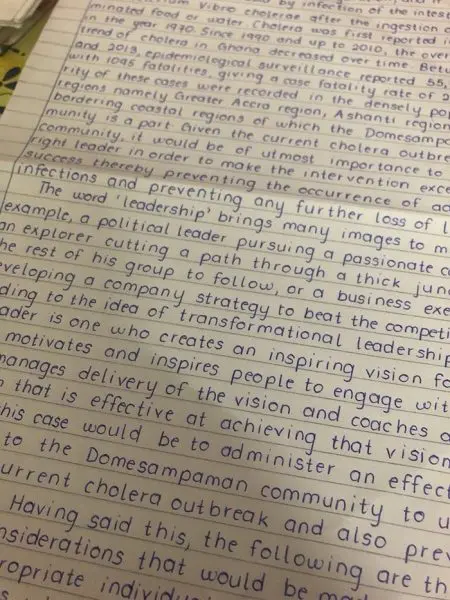 by infection of the intest
Vibro cholerae after the ingestion
minated food or water. Cholera was first reported i
in the year 1970. Since 1990 and up to 2010, the over
trend of cholera in Ghana decreased over time. Betw
and 2013, epidemiological surveillance reported 55,
with 1095 fatalities, giving a case fatality rate of 2
rity of these cases were recorded in the densely po
regions namely Greater Accra region, Ashanti region
bordering coastal regions of which the Domesampa
munity is a part. Given the current cholera outbre
community, it would be of utmost importance to
right leader in order to make the intervention exce
success thereby preventing the occurrence of ad
infections and preventing any further loss of l
The word 'leadership' brings many images to m
example, a political leader pursuing a passionate c
an explorer cutting a path through a thick jun
he rest of his group to follow, or a business exe
eveloping a company strategy to beat the competi
ding to the idea of transformational leadership
ader is one who creates an inspiring vision fo
motivates and inspires people to engage wit
manages delivery of the vision and coaches a
that is effective at achieving that vision
his case would be to administer an effect
to the Domesampaman community to u
urrent cholera outbreak and also prev
Having said this, the following are th
nsiderations that would be mad
ropriate individu